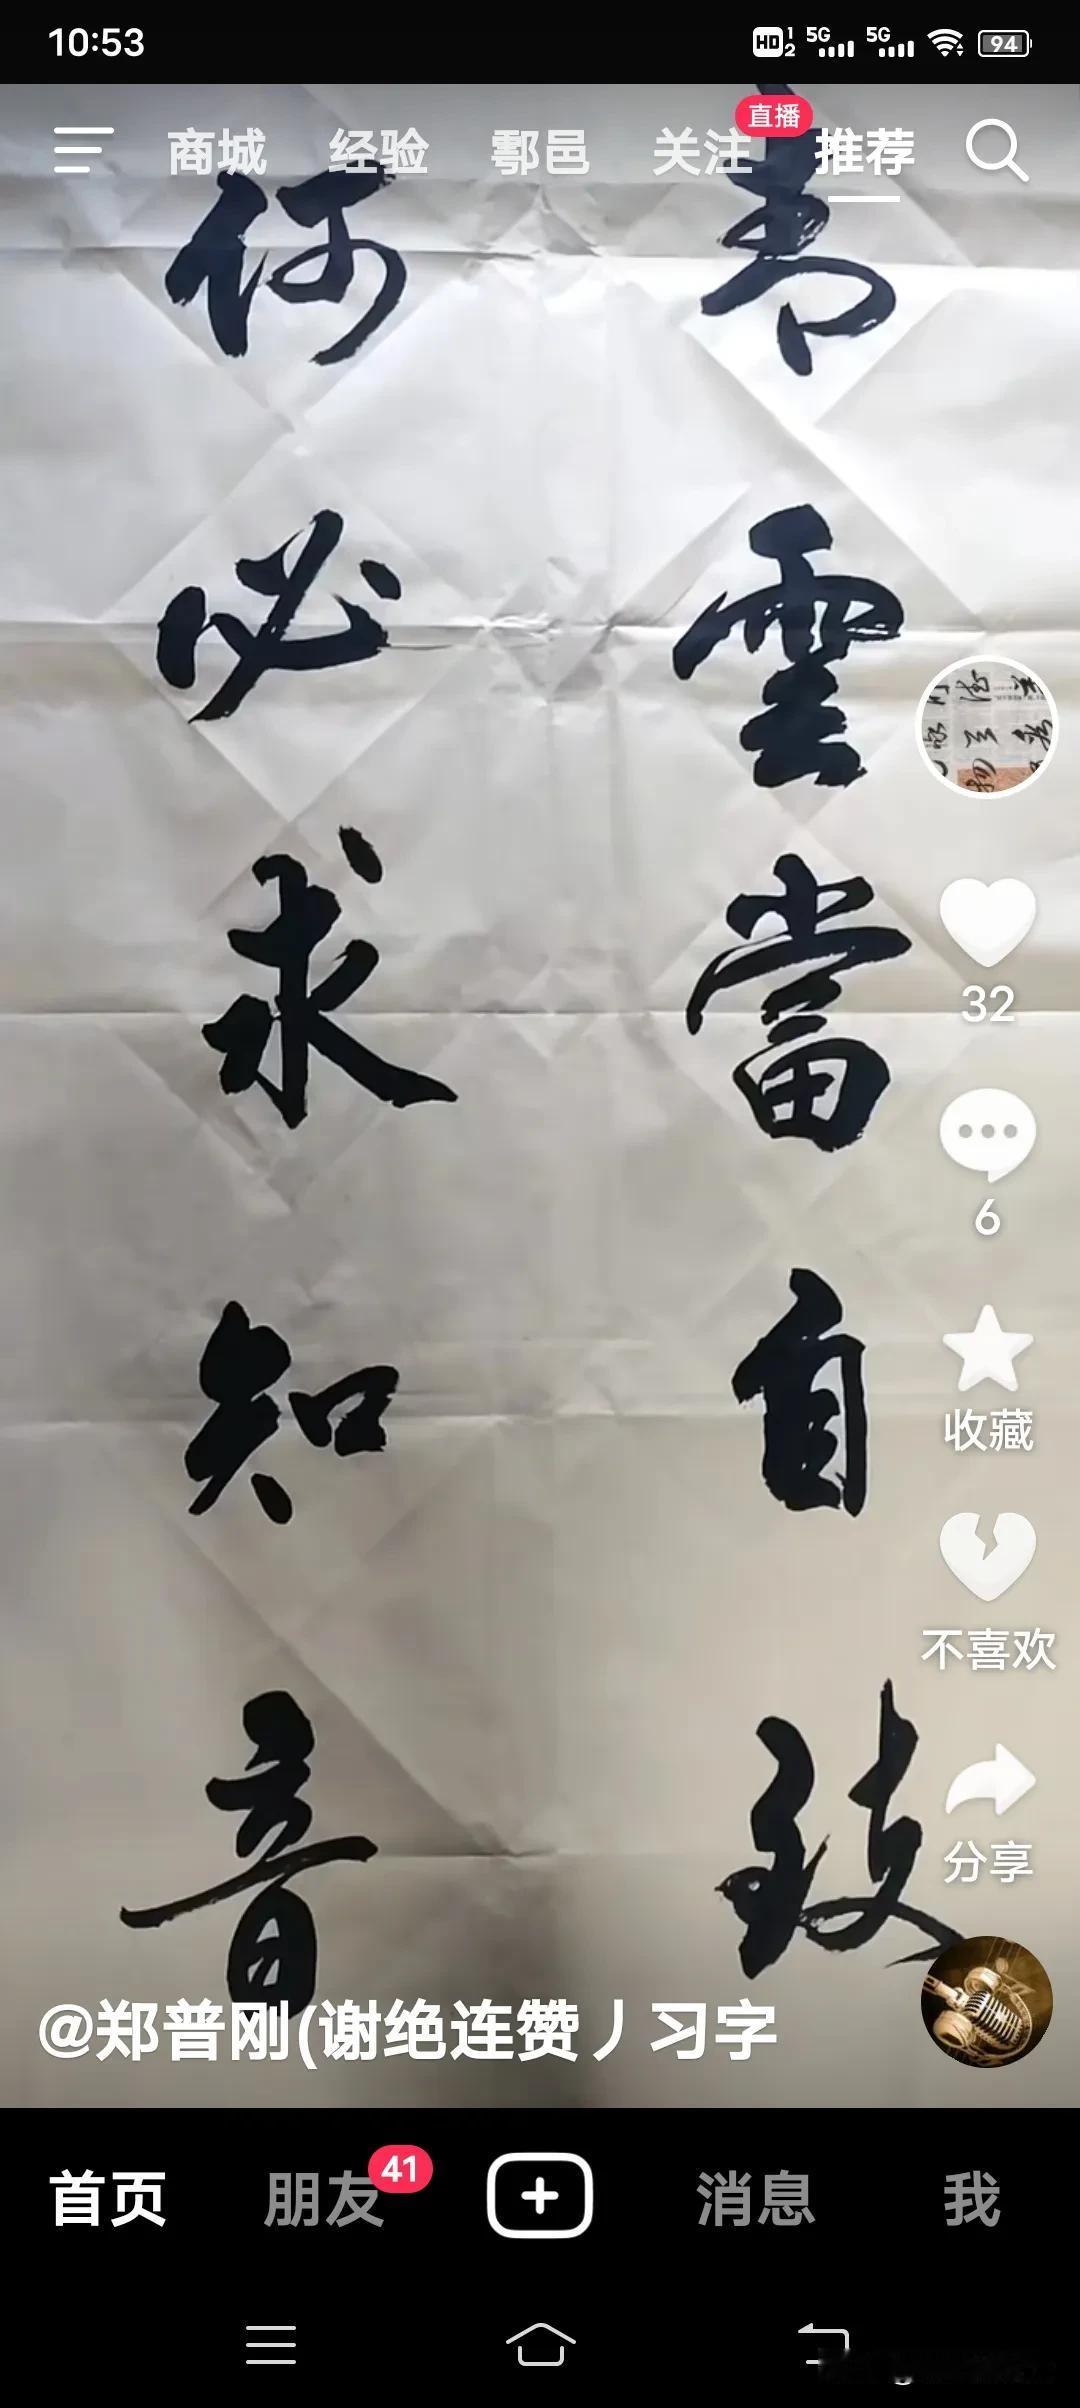 10:53
HD 1 2 5G 5G 94
商城 经验 鄠邑 关注 直播 推荐
青雲當自致
何必求知音
32
6
收藏
不喜欢
分享
@郑普刚(谢绝连赞丿习字
首页 朋友 41 消息 我